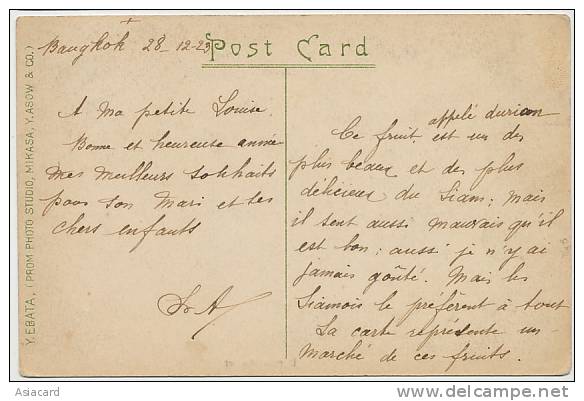 Bangkok 28-12-23
Post Card
A ma petite Louise.
Bonne et heureuse année
mes meilleurs souhaits
pour son Mari et tes
chers enfants
Ce fruit appelé durian est un des
plus beaux et des plus
délicieux du Siam; mais
il sent aussi mauvais qu'il
est bon; aussi je n'y ai
jamais goûté. Mais les
Siamois le préfèrent à tout
La carte représente un
marché de ces fruits.
Y. EBATA, (PROM PHOTO STUDIO, MIKASA, Y. ASOW & CO.)
Asiacard
delcampe.net